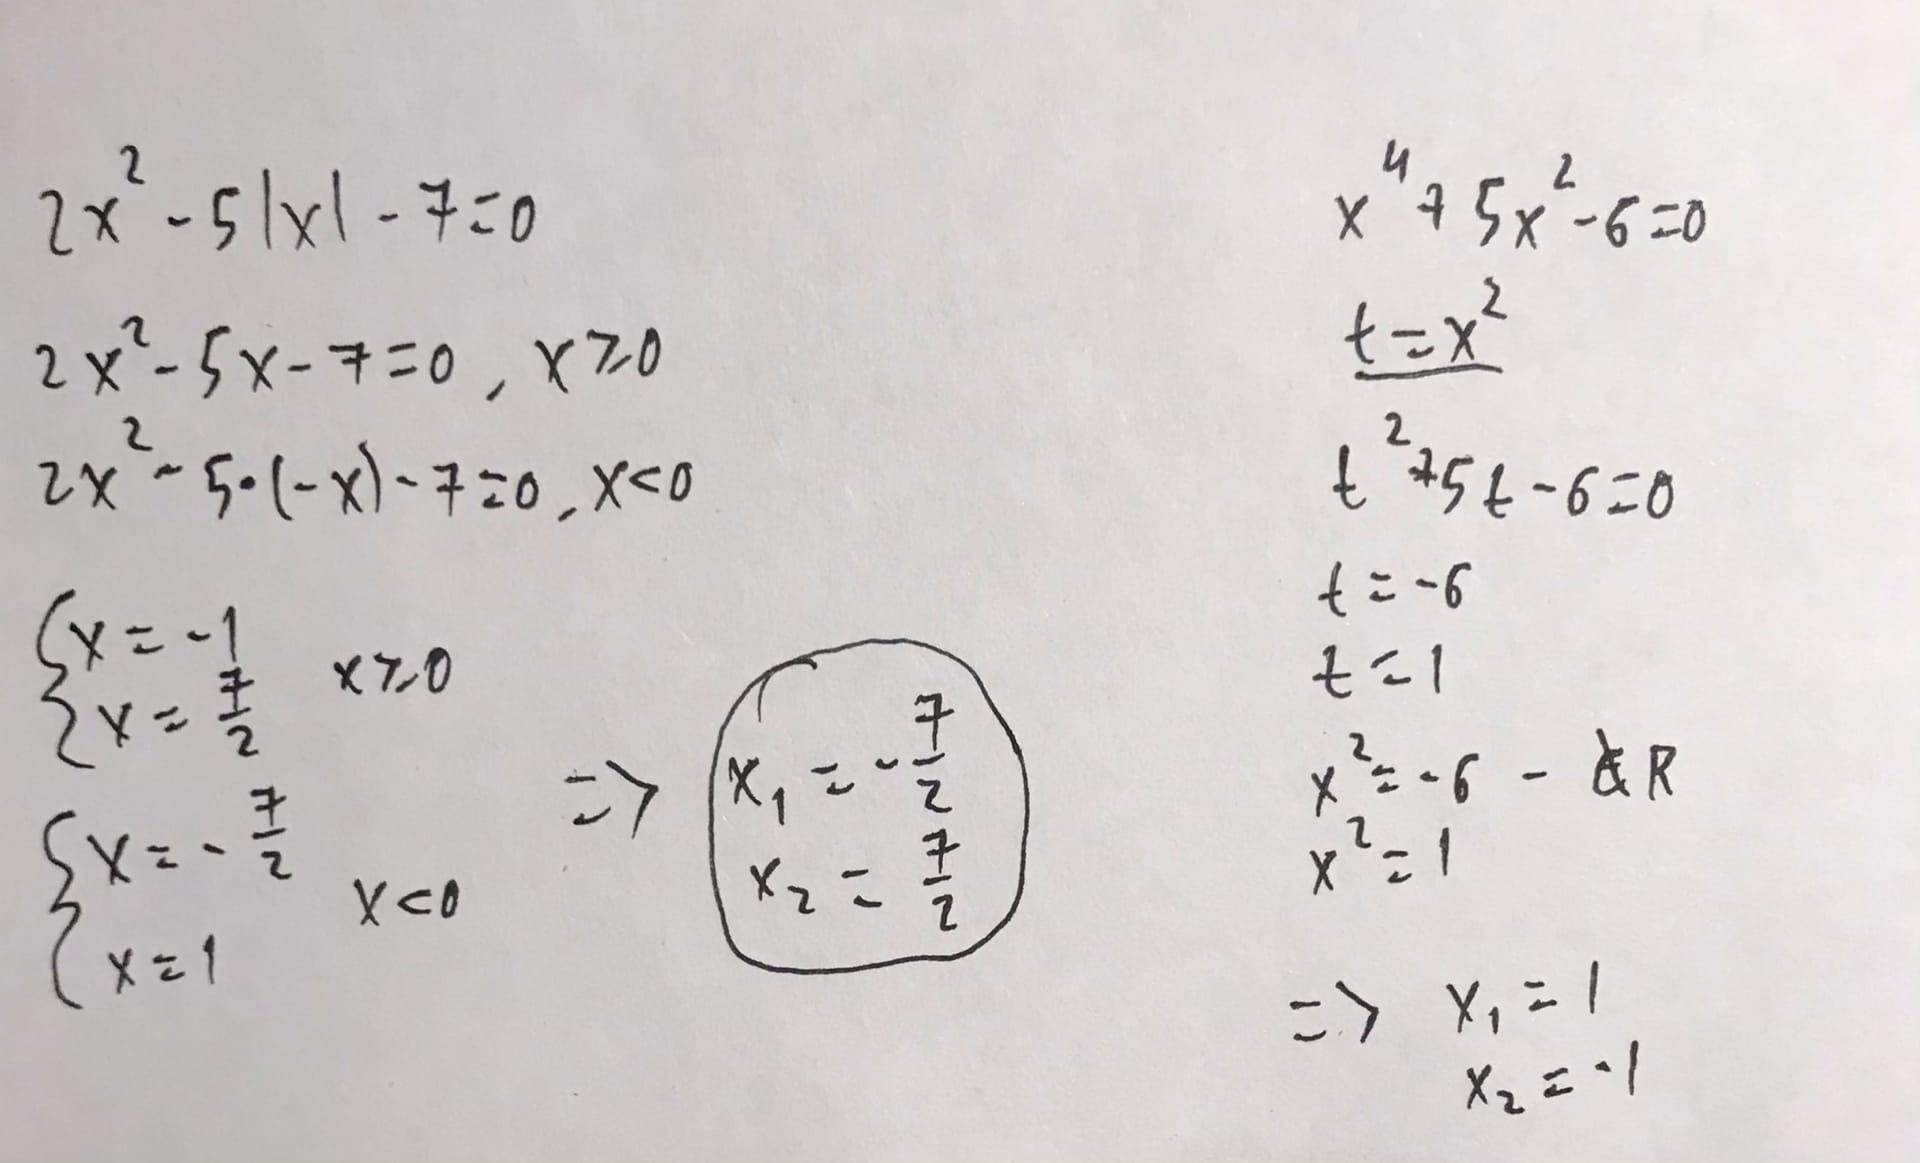 2x² - 5|x| - 7 = 0
2x² - 5x - 7 = 0, x ≥ 0
2x² - 5·(-x) - 7 = 0, x < 0
{ x = -1
{ x = 7/2
x ≥ 0
{ x = -7/2
{ x = 1
x < 0
=> x₁ = -7/2
x₂ = 7/2
x⁴ + 5x² - 6 = 0
t = x²
t² + 5t - 6 = 0
t = -6
t = 1
x² = -6 - ∉ R
x² = 1
=> x₁ = 1
x₂ = -1